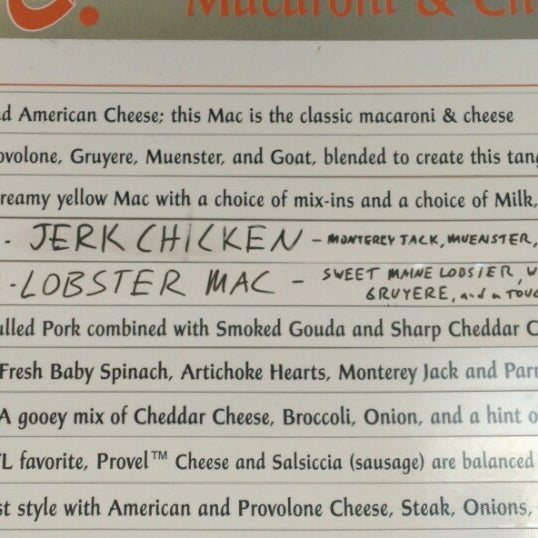 Macaroni & Ch
d American Cheese; this Mac is the classic macaroni & cheese
ovolone, Gruyere, Muenster, and Goat, blended to create this tang
reamy yellow Mac with a choice of mix-ins and a choice of Milk,
- JERK CHICKEN – MONTEREY JACK, MUENSTER,
- LOBSTER MAC – SWEET MAINE LOBSTER, W
GRUYERE, and a TOUC
ulled Pork combined with Smoked Gouda and Sharp Cheddar C
Fresh Baby Spinach, Artichoke Hearts, Monterey Jack and Parm
A gooey mix of Cheddar Cheese, Broccoli, Onion, and a hint o
L favorite, Provel™ Cheese and Salsiccia (sausage) are balanced
st style with American and Provolone Cheese, Steak, Onions,